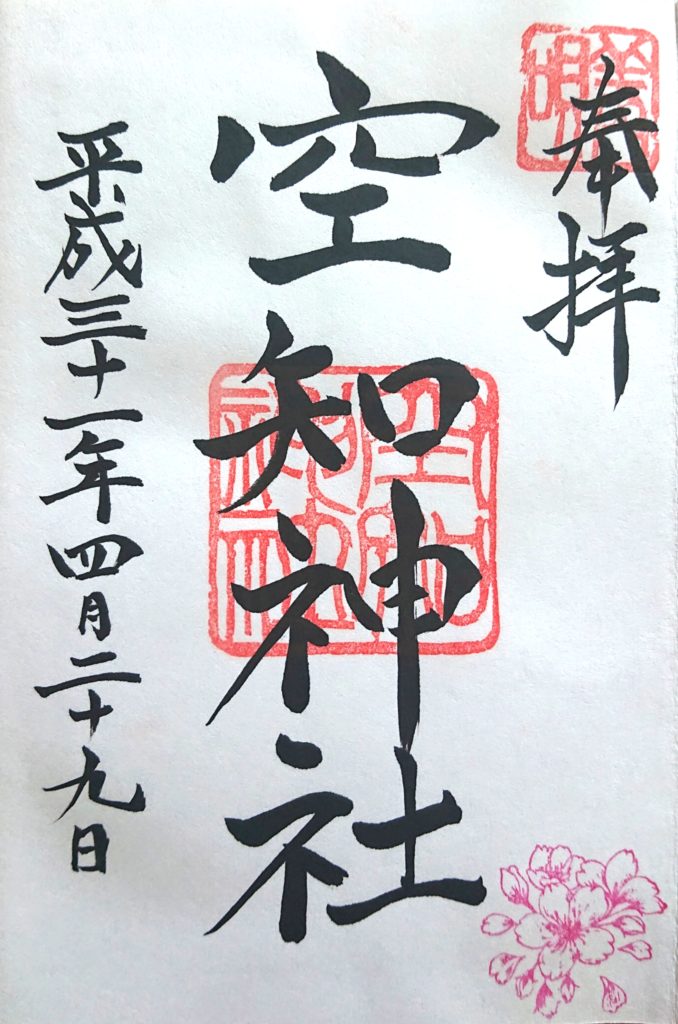 奉拝
空知神社
平成三十一年四月二十九日